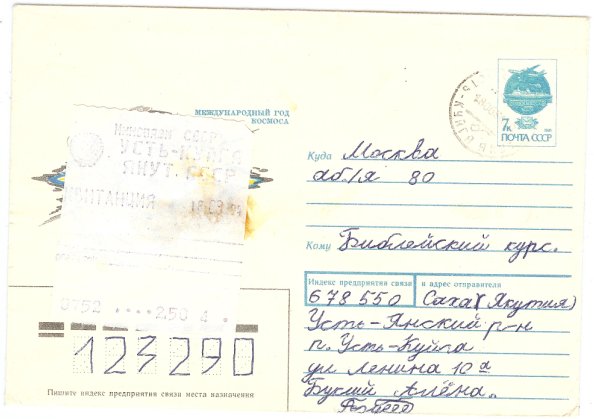 МЕЖДУНАРОДНЫЙ ГОД
КОСМОСА
7к
ПОЧТА СССР
Минсвязи СССР
УСТЬ-КУЙГА
ЯКУТ. ССР
КВИТАНЦИЯ
Куда Москва
аб/я 80
Кому Библейский курс.
Индекс предприятия связи и адрес отправителя
678550 Саха (Якутия)
Усть-Янский р-н
п. Усть-Куйга
ул Ленина 10а
Алёна.
2.50
123290
Пишите индекс предприятия связи места назначения